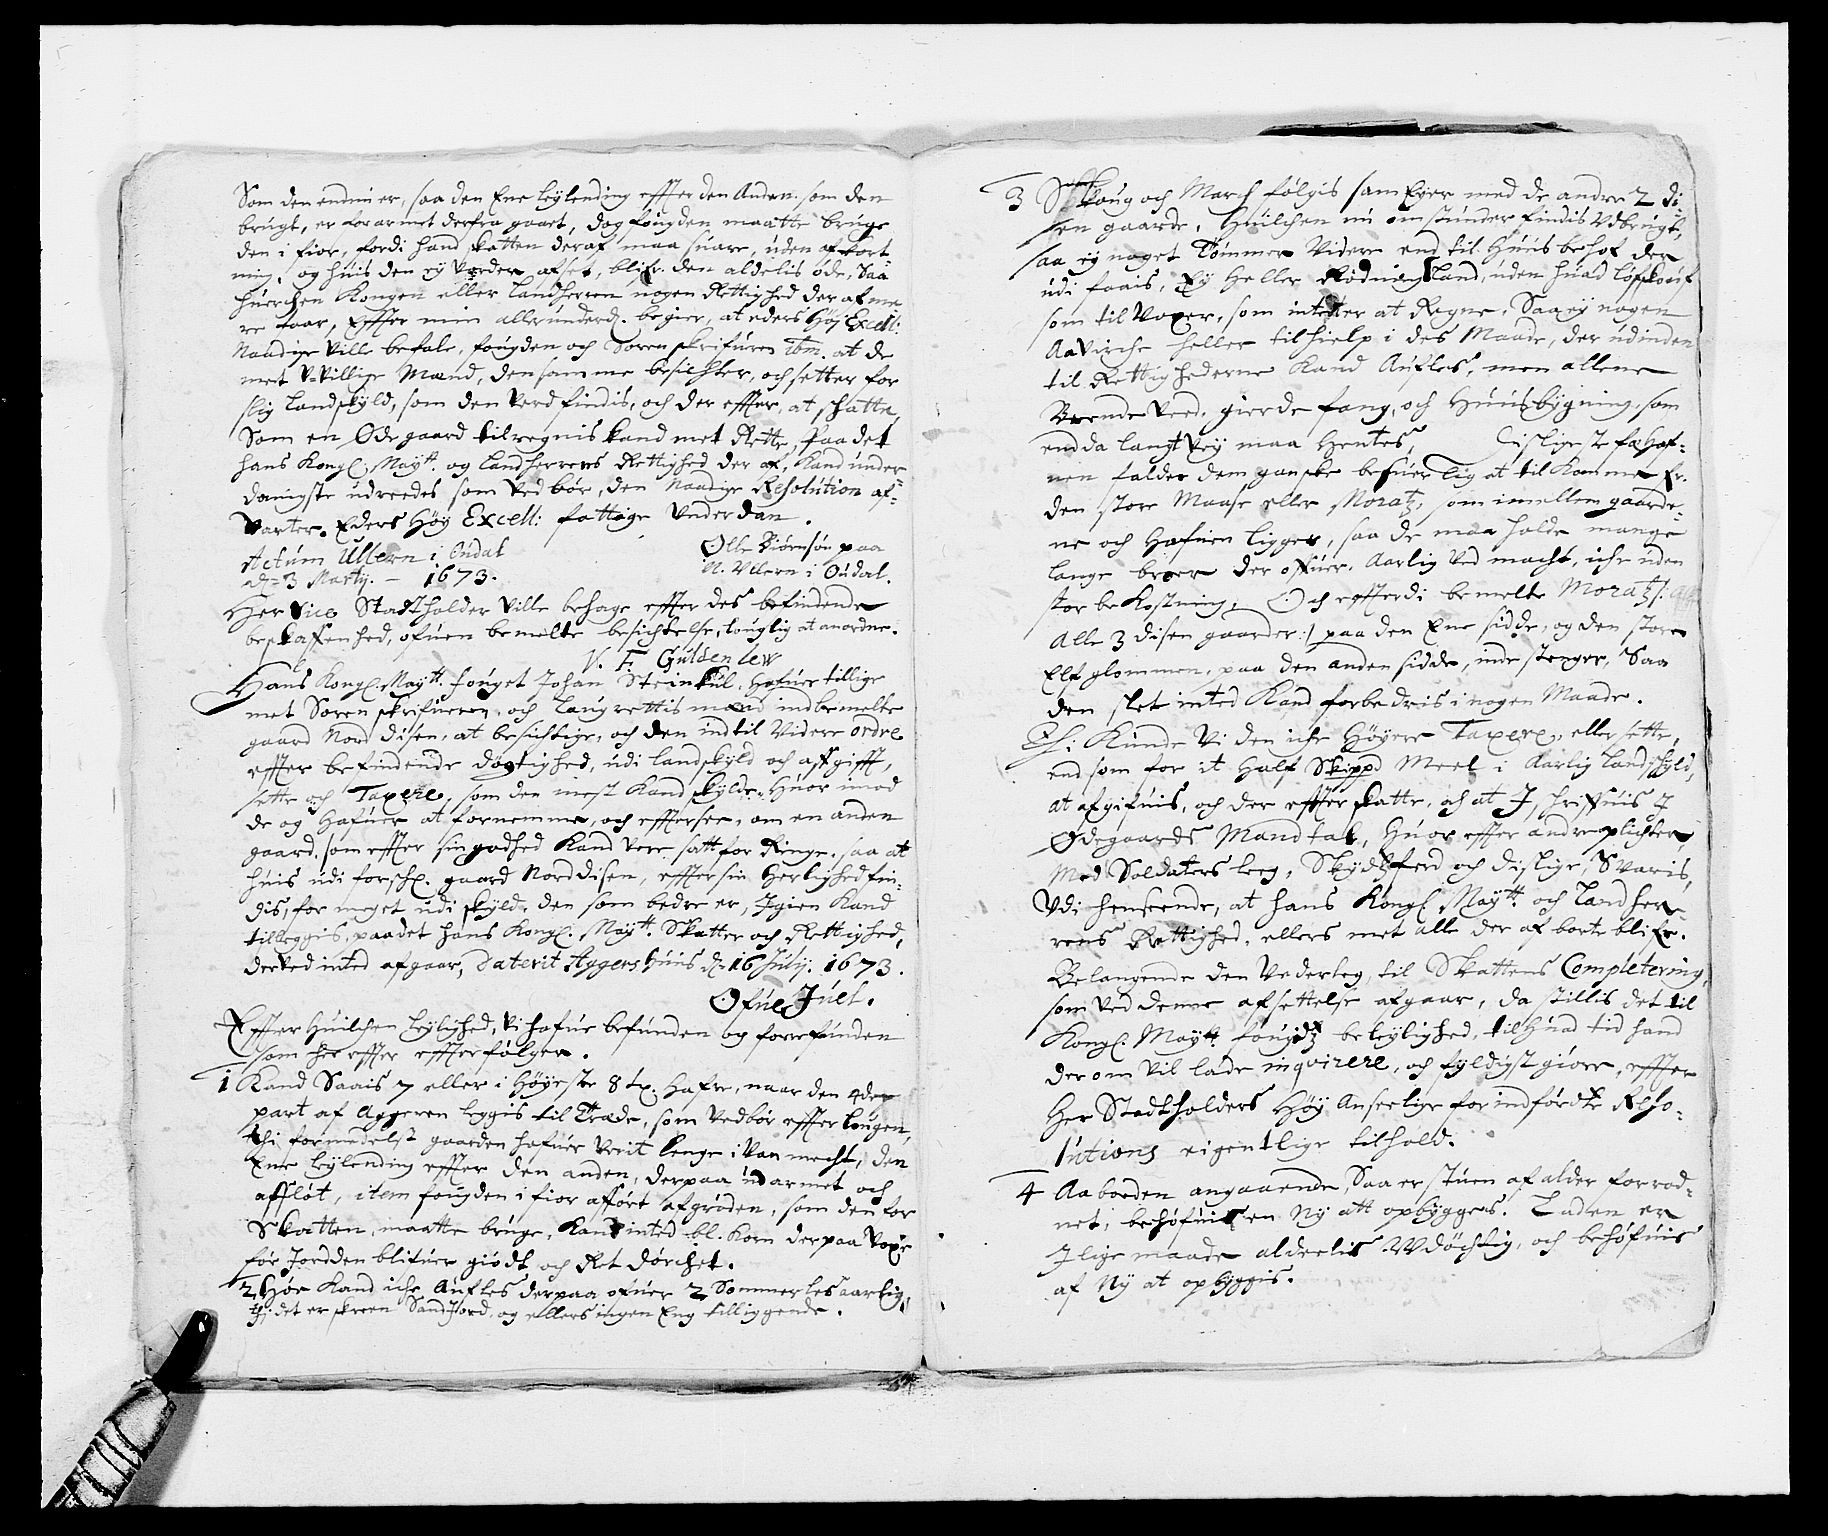 Som den endnu er, saa den Ene leylending effter den Anden. som den
brugt, er forarmet derfra gaaet, dog fougden maatte bruge
den i fior, fordi hand skatten deraf maa suare, uden afkort
ning, og huis den ey vorder afset, blifr. den aldelis øde, Saa
huercken Kongen eller Landherren nogen Rettighed der af me
re faar, Effter min allerunderd. begier, at eders Høj Excell:
Naadige ville befale, fougden och Soren skrifuren Ibm. at de
met Uvillige Mænd, den samme besichter, och setter for
slig Landskyld, som den Verd findis, och der effter, at skatte,
Som en Øde gaard tilregnis kand met Rette, Paa det
hans Kongl. Maytt. og Landherrens Rettighed der af, Kand under
danigste udreedes som ved bør, den Naadige Resolution af-
Varter. Eders Høy Excell: fattige Underdan.
Actum Ullern i Oudal
ad= 3 Marty. - 1673.
Olle Biørnsøn paa
N. Ullern i Oudal.
Her Vice Stadtholder Ville behage effter des befindende
beskaffenhed, ofuen bemelte besichtelse, louglig at anordne.
V. F. Güldenlew
Hans Kongl. Maytt. fouget Johan Steinkul, Hafuer tillige
met Soren skrifueren, och Laugrettis mænd indbemelte
gaard Nord Disen, at besichtige, och den indtil Videre ordre
effter befindende døgtighed, udi landskyld och affgifft,
sette och Taxere, som den mest Kand skylde. Huor imod
de og Hafuer at fornemme, och efftersee, om en anden
gaard, som effter sin godhed Kand Vere satt for Ringe, saa at
huis udi forschr. gaard Norddisen, effter sin Herlighed fin-
dis, for meget udi skyld, den som bedre er, Igien Kand
tilleggis, paa det hans Kongl. Maytt. Skatter och Rettighed,
derved inted afgaar, Daterit Aggershuus d= 16 July. 1673.
Ofue Juel.
Effter Huilchen leylighed, Vi hafuer befunden og forrefunden
som her effter effterfølger.
1 Kand Saais 7 eller i Høyeste 8 tr. Hafre, naar den 4de
part af Aggeren leggis til Træde, som Vedbør effter Lougen,
thi formedelst gaarden hafuer Verit lenge i Van mecht, den
Ene leylending effter den anden, derpaa udarmet och
affløt, item fougden i fior afført afgrøden, som den for
Skatten, maatte bruge, Kand inted bl. Korn derpaa Voxe
før Jordden blifuer giødt och Ret dørchet.
2 Høe Kand iche Aufles derpaa ofuer 2 Sommerles aarlig,
thj: det er skreen Sandjord, og ellers ingen Eng tilliggende.
3 Skoug och March følgis sam Eyer med de andre 2 Di-
sen gaarde, Huilchen nu omstunder findis Udbrugt,
saa ej noget Tømmer Videre end til Huus behof der
udi faais, Ey Heller Rødnings Land, uden huad løffskouf
som til Voxer, som intet er at Regne, Saa ey nogen
AaVirche heller til hielp i des Maade, der udinden
til Rettighederne Kand Aufles, men allene
Brende Veed, gierde fang, och Huusbygning, som
endda langt Vej maa Hentes, Dislige ste fæHaf-
nen falder dem ganske besuerlig at til Komme fr.
den store Maase eller Moratz, som imellem gaarde-
ne och Hafnen ligger, saa de maa holde mange
lange broer der ofuer, Aarlig Ved macht, iche uden
stor beKostning, Och effterdi bemelte Moratz /:
Alle 3 disen gaarder :/ paa den Ene side, og den store
Elf glommen, paa den anden side, inde stenger, Saa
den slet inted Kand forbedris i nogen Maade.
Thi Kunde Vi den iche Høyere Taxere, eller sette,
end som for it Half Skippd Meel i Aarlig Landskyld,
at afgifuis, och der effter skatte, och at J, hrifuis J
Ødegaards Mandtal, Huor effter andre plichter
Med Soldaters leg, Skydtzferd och dislige, Svaris,
Udi henseende, at hans Kongl. Maytt. och Landher-
rens Rettighed, ellers met alle der af borte blifr.
Belangende den Vederleg, til Skattens Completering,
som ved denne afsettelse afgaar, da stillis det til
Kongl. Maytt. fougdz beleylighed, til Huad tid hand
der om vil lade inqvirere, och fyldist giøre, effter
Her Stadtholders Høy Anseelige for indførdte Reso-
lutions eigentlige tilhold.
4 Aaboeden angaaende, Saa er stuen af alder forrod-
net, behøfuis en Ny att opbygges. Laden er
J lige maade aldeelis Udøchtig, och behøfuis
af Ny at opbyggis.